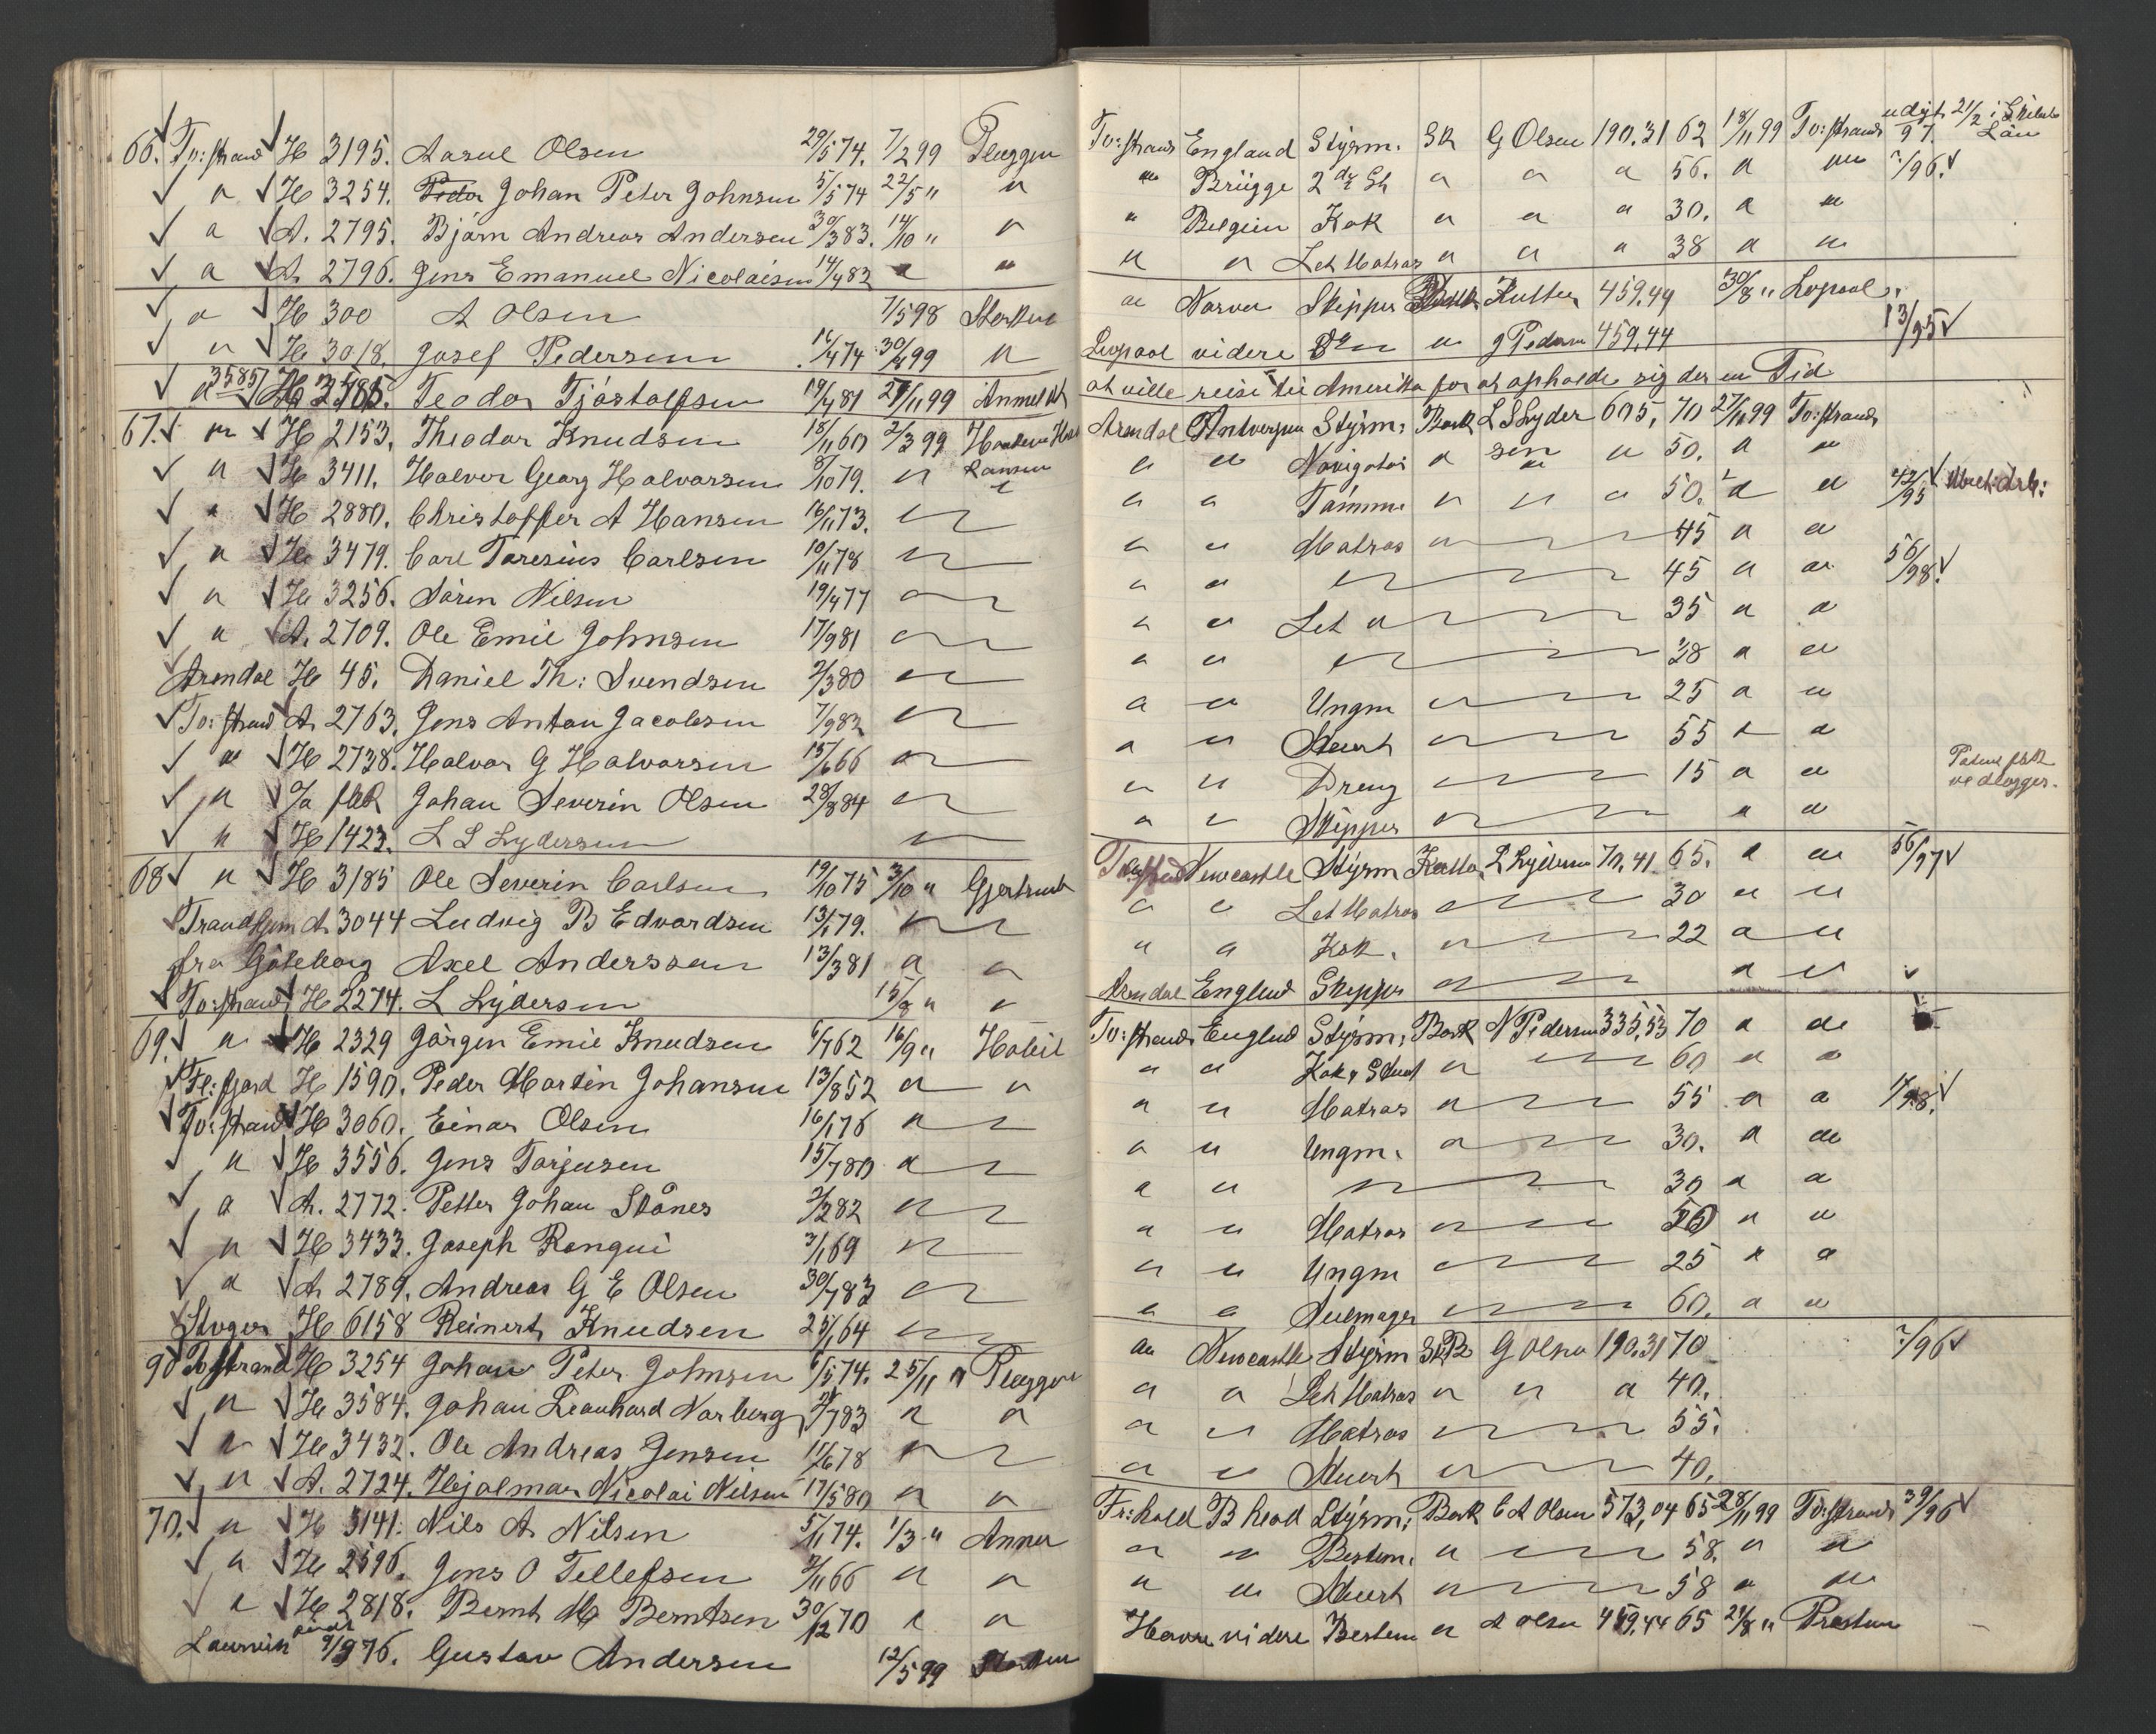 66. To:strand H 3195. Aasul Olsen 29/5 74. 7/2 99 Pluggen
" H 3254. Johan Peter Johnsen 5/5 74 22/5 " "
" A. 2795. Bjørn Andreas Andersen 30/3 83. 14/10 " "
" A 2796. Jens Emanuel Nicolaisen 14/4 82 " "
" H 300 A Olsen 7/5 98 Storken
" H 3018. Josef Pedersen 14/4 74 30/4 99 "
" 3585 Teodor Tjøstolfsen 19/4 81 21/11 99 Anmeldt
67. " H 2153. Theodor Knudsen 18/11 60 2/3 99
" H 3411. Halvor Georg Halvorsen 8/10 79. "
" H 2880. Christoffer A Hansen 16/11 73. "
" H 3479. Carl Taresius Carlsen 10/11 78 "
" H 3256. Søren Nilsen 19/4 77 "
" A. 2709. Ole Emil Johnsen 17/9 81 "
Arendal H 45. Daniel Th: Svendsen 2/3 80 "
To:strand A. 2763. Jens Anton Jacobsen 7/9 82 "
" H 2738. Halvor G Halvorsen 15/6 66 "
" Johan Severin Olsen 28/8 84 "
" H 1423. L S Lydersen "
68 " H 3185 Ole Severin Carlsen 19/10 75 3/10 " Gjertrud
Trondhjem A 3044 Ludvig B Edvardsen 13/1 79. "
fra Göteborg Axel Anderssen 13/3 81 " "
To:strand H 2274. L Lydersen 15/8 " "
69. " H 2329 Jørgen Emil Knudsen 6/7 62 16/9 " Habil
Fl:fjord H 1590. Peder Martin Johansen 13/8 52 " "
To:strand H 3060. Einar Olsen 16/1 76 "
" H 3556. Jens Torjusen 15/7 80 "
" A. 2772. Petter Johan Stånes 2/2 82 "
" H 3433. Joseph Ronqui 3/1 69 "
" A 2789. Andreas G E Olsen 30/7 83 "
H 6158 Reinert Knudsen 25/1 64 "
90 To:strand H 3254 Johan Peter Johnsen 6/5 74. 25/11 " Pluggen
" H 3584. Johan Leonhard Norberg 2/7 83 " "
" H 3432. Ole Andreas Jensen 11/6 78 "
" A. 2724. Hjalmar Nicolai Nilsen 17/5 80 " "
70. " H 3141. Nils A Nilsen 5/11 74. 1/3 " Anna
" H 2596. Jens O Tellefsen 2/11 66 " "
" H 2818. Bernt M Berntsen 30/12 70 " "
Laurvik 976. Gustav Andersen 12/5 99 Storken
To:strand England Styrm. Sk G Olsen 190.31 62 18/11 99 To:strand udgt 21/2 97.
" Brügge 2den St " " " 56. " " 7/96.
" Belgien Kok " " " 30. " "
" " Let Matros " " " 38 " "
" Narva Skipper Kutter 459.44 30/8 " Lvpool " 13/95
Lvpool videre Do " J Pedersen 459.44
at ville reise til Amerika for at opholde sig der en Tid
Arendal Antverpen Styrm. Bark L S Lydersen 605, 70 27/11 99 To:strand
" " Navigatør " " " 50. " "
" " Tømmm " " " 50. " " 42/95
" " Matros " 45 " "
" " " 45 " " 56/98.
" " Let " 35 " "
" " " 38 " "
" " Ungm " 25 " "
" " Stuert " 55 " "
" " Dreng " 15 " "
" " Skipper " " "
Newcastle Styrm L Lydersen 70,41 65. " " 56/97
" " Let Matros " 30 " "
" " Kok. " 22 " "
Arendal England Skipper " " "
To:strand England Styrm. Bark N Pedersen 335,53 70 " "
" " Kok & Stuert " 60 " "
" " Matros " 55 " "
" " Ungm. " 30. " "
" " " 30 " "
" " Matros " 50 " "
" " Ungm " 25 " "
" " Seilmager " 60. " "
" Newcastle Styrm Sk G Olsen 190.31 70 7/96
" " Let Matros " " " 40.
" " Matros " 55.
" " Stuert " 40.
Fr:hald B head Styrm. Bark C A Olsen 573,04 65 28/11 99 To:strand 39/96
" " Bestm. " 58. " "
" " Stuert " 58 " "
Havre videre Bestm " A Olsen 459.44 65 24/8 " Preston